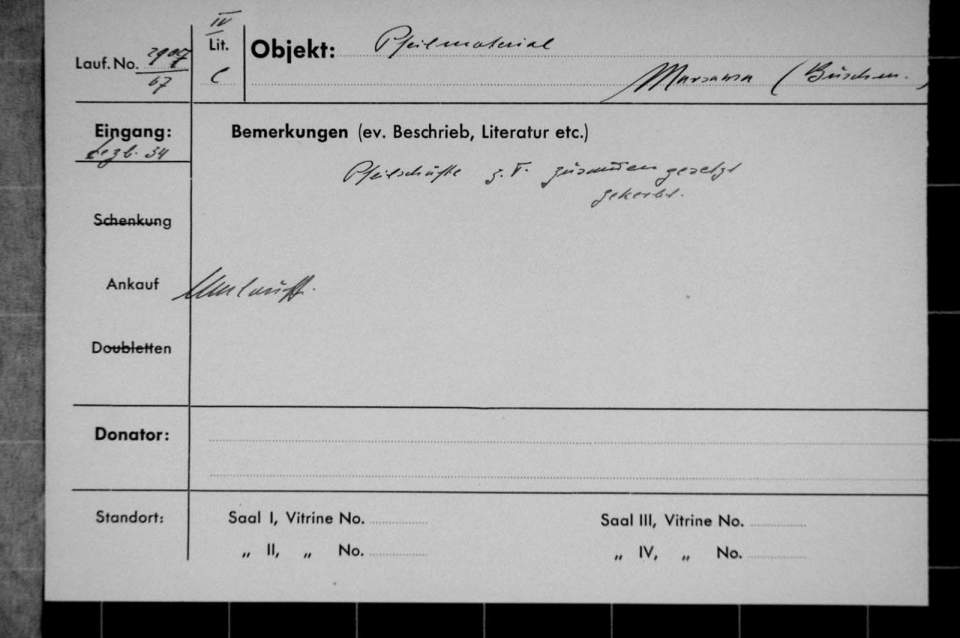 IV
Lauf. No. 2907
67
Lit.
C
Objekt: Pfeilmaterial
Marsawa (Buschm.)
Eingang:
Dezb. 34
Bemerkungen (ev. Beschrieb, Literatur etc.)
Pfeilschäfte z. T. zusammengesetzt
gekerbt.
Schenkung
Ankauf
Doubletten
Donator:
Standort:
Saal I, Vitrine No.
„ II, „ No.
Saal III, Vitrine No.
„ IV, „ No.